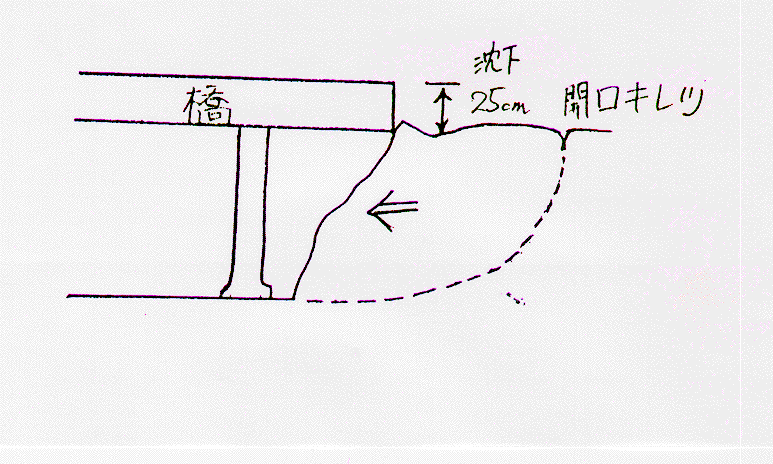 沈下
橋
25cm
開口キレツ